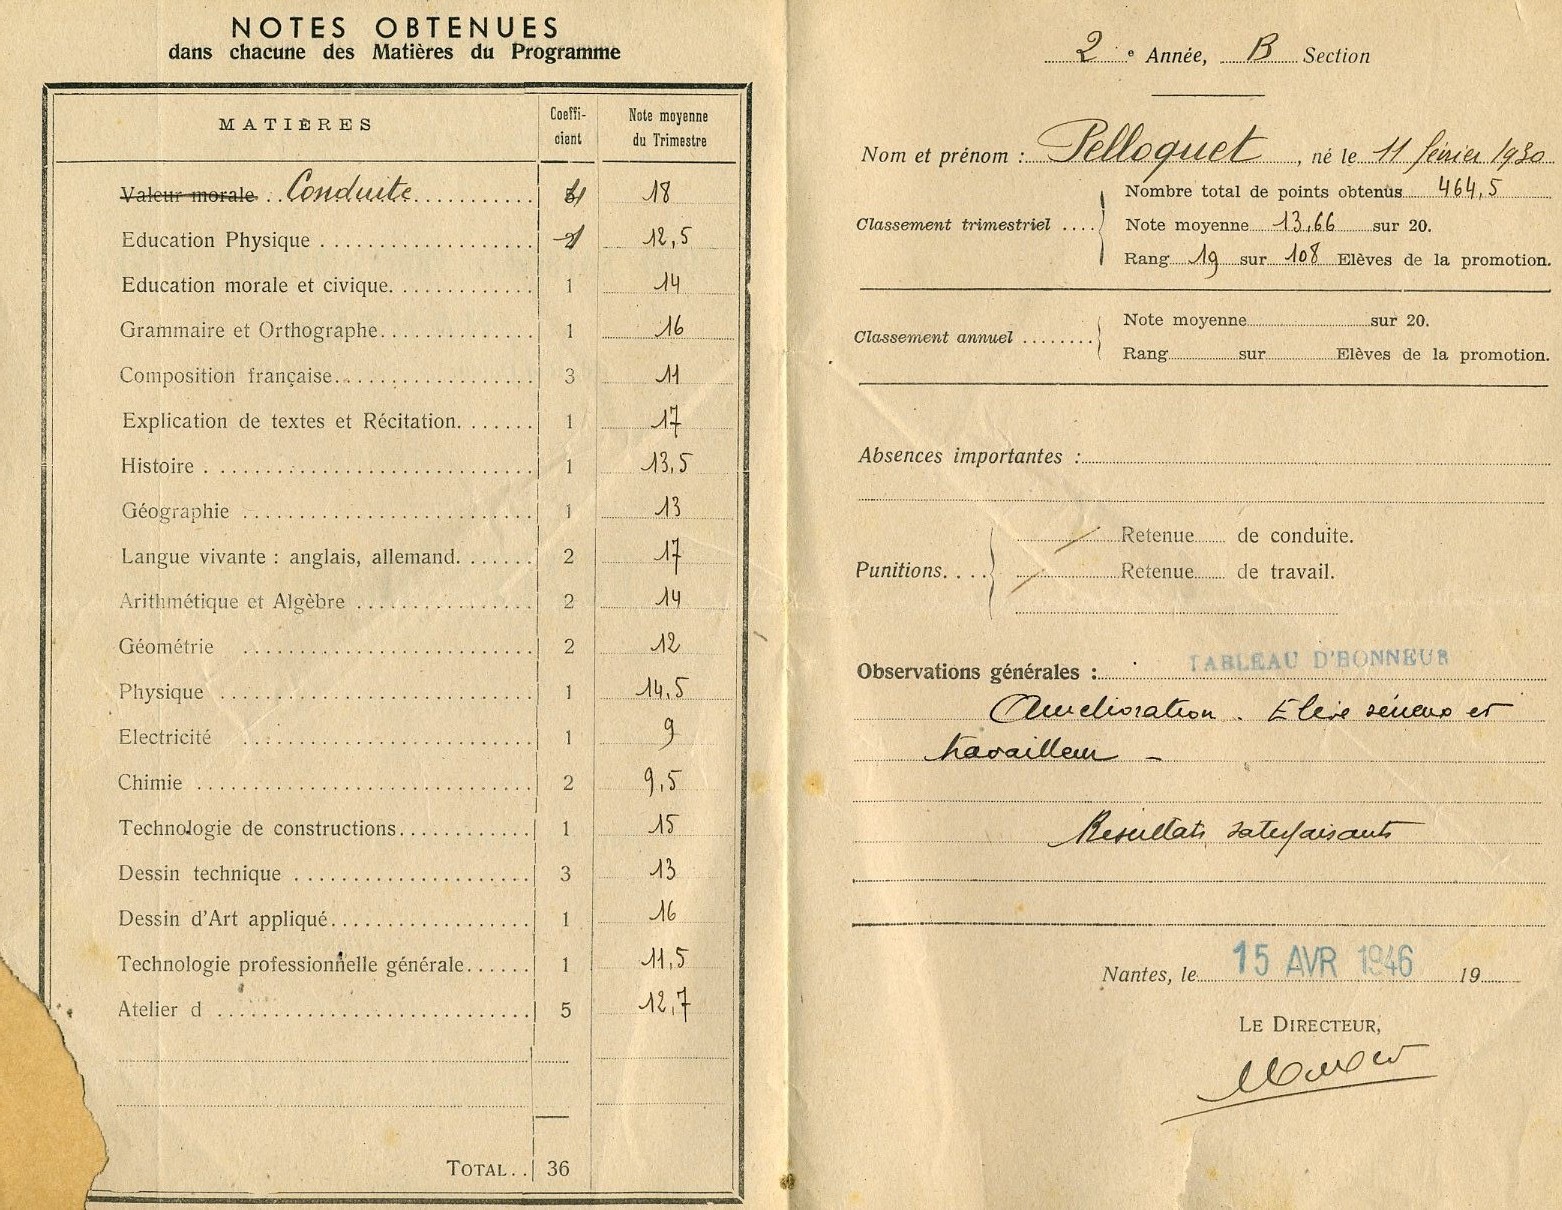 NOTES OBTENUES
dans chacune des Matières du Programme
MATIÈRES Coeffi-cient Note moyenne du Trimestre
Valeur morale .. Conduite 18
Education Physique 12,5
Education morale et civique. 1 14
Grammaire et Orthographe 1 16
Composition française 3 11
Explication de textes et Récitation. 1 17
Histoire 1 13,5
Géographie 1 13
Langue vivante : anglais, allemand. 2 17
Arithmétique et Algèbre 2 14
Géométrie 2 12
Physique 1 14,5
Electricité 1 9
Chimie 2 9,5
Technologie de constructions 1 15
Dessin technique 3 13
Dessin d'Art appliqué 1 16
Technologie professionnelle générale 1 11,5
Atelier d 5 12,7
TOTAL .. 36
2e Année, B Section
Nom et prénom : Pelloquet, né le 11 février 1930
Classement trimestriel
Nombre total de points obtenus 464,5
Note moyenne 13,66 sur 20.
Rang 19 sur 108 Elèves de la promotion.
Classement annuel
Note moyenne sur 20.
Rang sur Elèves de la promotion.
Absences importantes :
Punitions
Retenue de conduite.
Retenue de travail.
Observations générales : TABLEAU D'HONNEUR
Amelioration. Elève sérieux et
travailleur -
Resultats satisfaisants
Nantes, le 15 AVR 1946 19
LE DIRECTEUR,